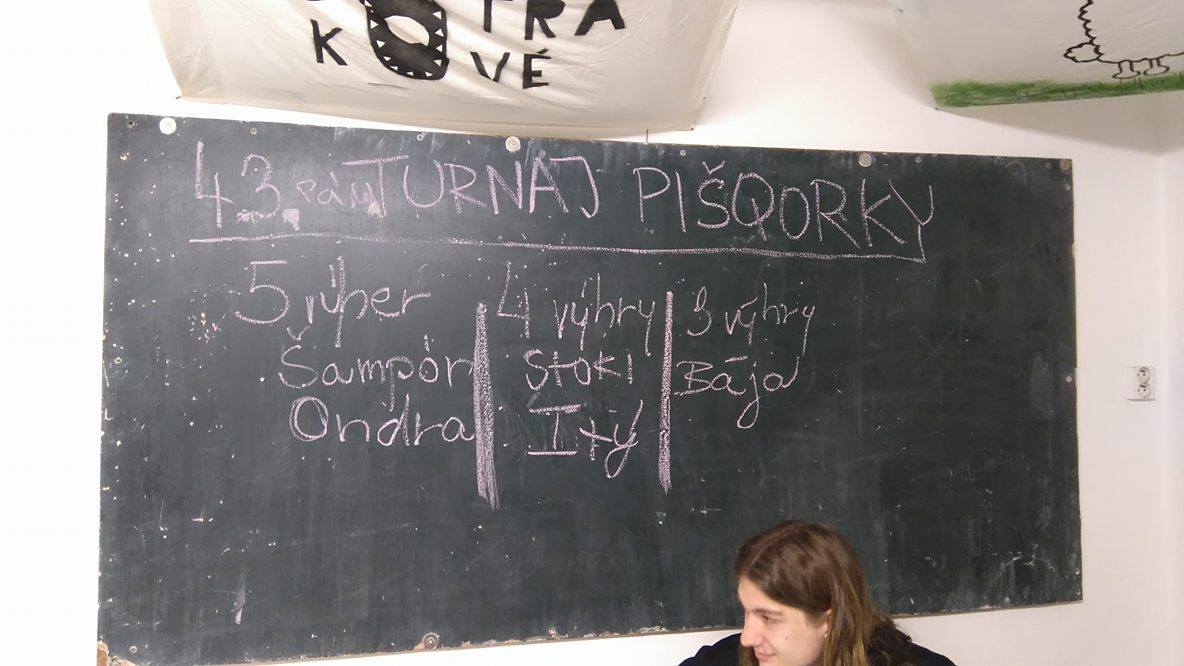 TRA
K VÉ
43. TURNAJ PIŠQORKY
5 výher
Šampón
Ondra
4 výhry
Stoki
Itý
3 výhry
Bája